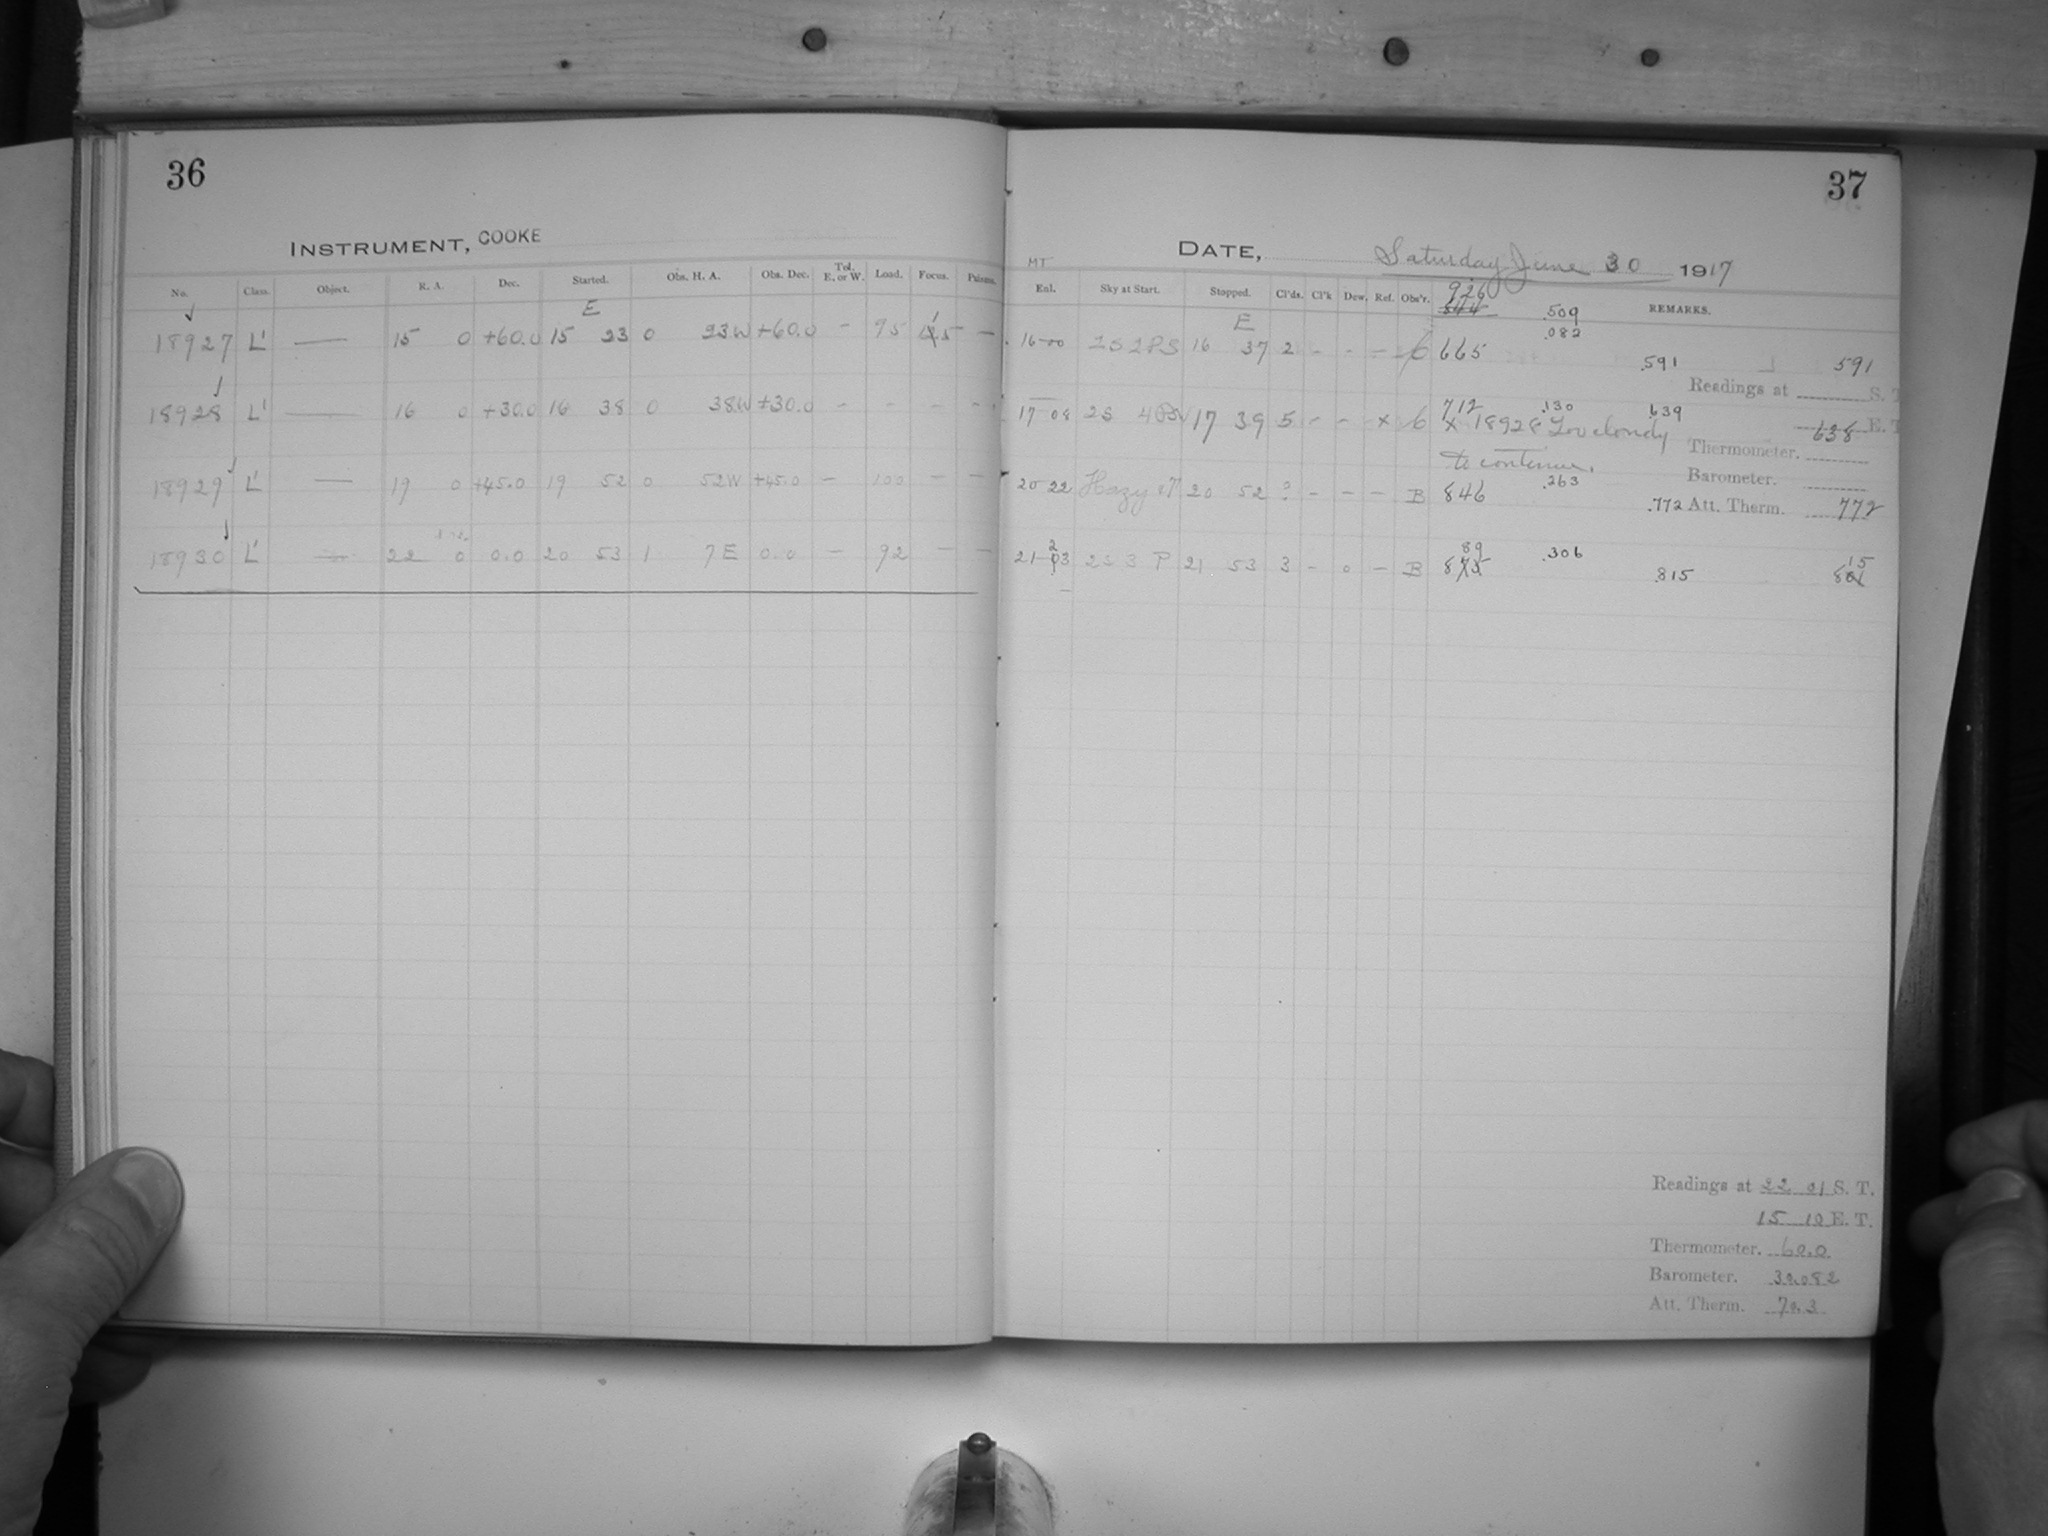 36
INSTRUMENT, COOKE
No. Class. Object. R. A. Dec. Started. Obs. H. A. Obs. Dec. Tel. E. or W. Load. Focus.
E
18927 L' — 15 0 +60.0 15 23 0 23W +60.0 - 95 —
18928 L' — 16 0 +30.0 16 38 0 38W +30.0 - - - -
18929 L' — 19 0 +45.0 19 52 0 52W +45.0 - 100 - -
18930 L' — 22 0 0.0 20 53 1 7E 0.0 - 92 - -
37
DATE, Saturday June 30 1917
MT
Enl. Sky at Start. Stopped. Cl'ds. Cl'k Dew. Ref. Obs'r. REMARKS.
926
.509
E .082
16-00 2S 2PS 16 37 2 - - - 6 665 .591 591
Readings at S. T.
17-08 2S 17 39 5 - - x 6 712 .130 .639 638 E. T.
x 18928 Too cloudy
to continue.
Thermometer.
Barometer.
20 22 Hazy 20 52 ? - - - B 846 .263 .772 Att. Therm. 772
21 2S 3 P 21 53 3 - 0 - B 89 .306 .815 15
Readings at 22 01 S. T.
15 10 E. T.
Thermometer. 60.0
Barometer. 30.082
Att. Therm. 70.3